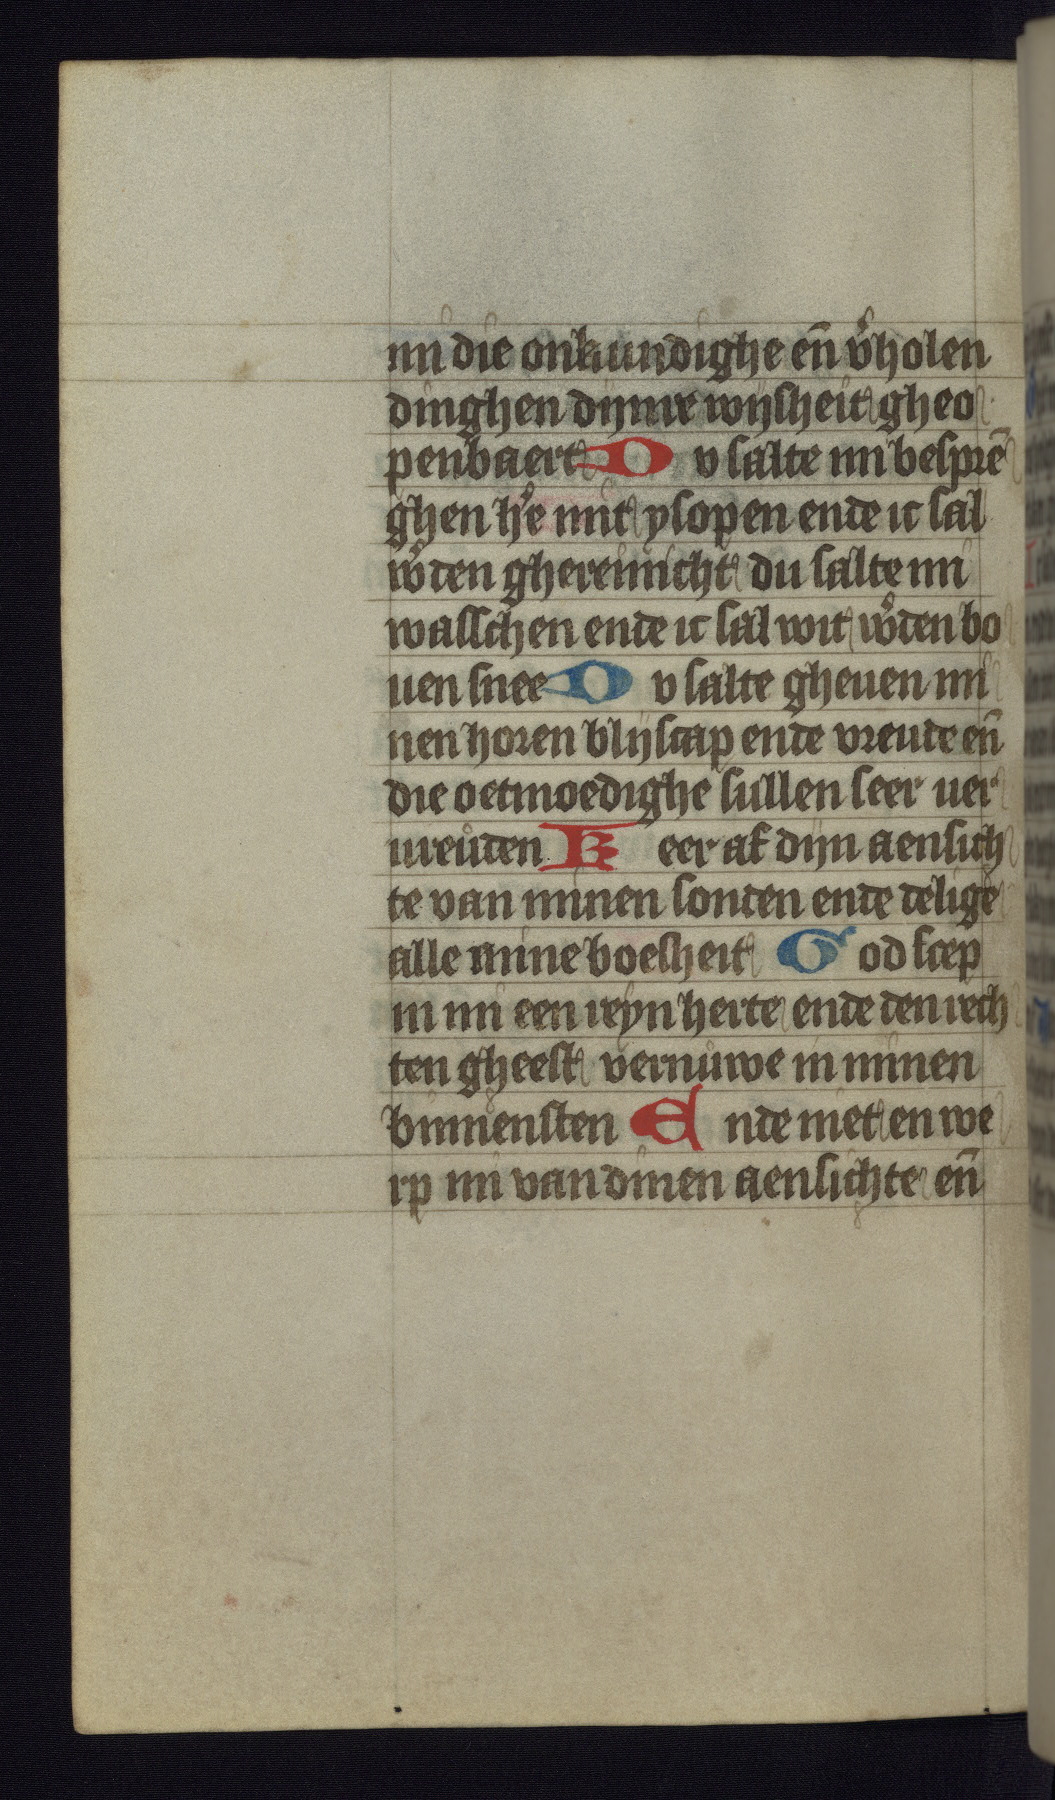 mi die onkundighe en̄ v̾holen
dinghen dijnre wijsheit gheo
penbaert Du salte mi besprē
ghen h̾e mit ysopen ende ic sal
w̾den ghereinicht du salte mi
wasschen ende ic sal wit w̾den bo
uen snee Du salte gheuen mi
nen horen blijscap ende vreude en̄
die oetmoedighe sullen seer uer
ureuden Keer af dijn aensich
te van minen sonden ende delige
alle mine boesheit God scep
in mi een reyn herte ende den rech
ten gheest vernuwe in minen
binnensten Ende niet en we
rp mi van dinen aensichte en̄